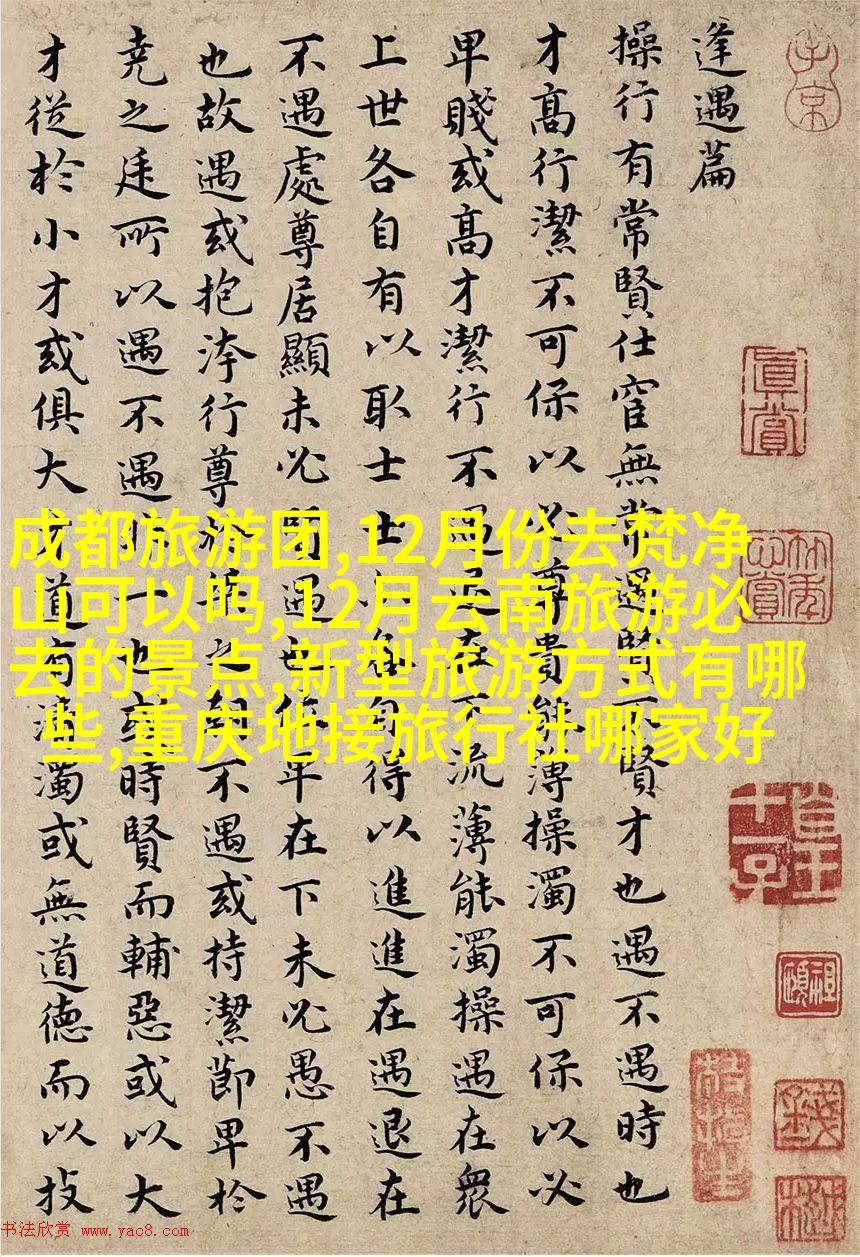 逢遇篇
操行有常賢仕宦無常遇賢不賢才也遇不遇時也
才高行潔不可保以必尊貴能薄操濁不可保以必
卑賤或高才潔行不遇退在下流薄能濁操遇在衆
上世各自有以取士士亦各自得以進進在遇退在
不遇處尊居顯未必賢遇也位卑在下未必愚不遇
也故遇或抱洿行尊於桀之朝不遇或持潔節卑於
堯之廷所以遇不遇非一也或時賢而輔惡或以大
才從於小才或俱大才道有清濁或無道德而以技
真賞
成都旅游团,12月份去梵净
山可以吗,12月云南旅游必
去的景点,新型旅游方式有哪
些,重庆地接旅行社哪家好
书法欣赏 www.yac8.com